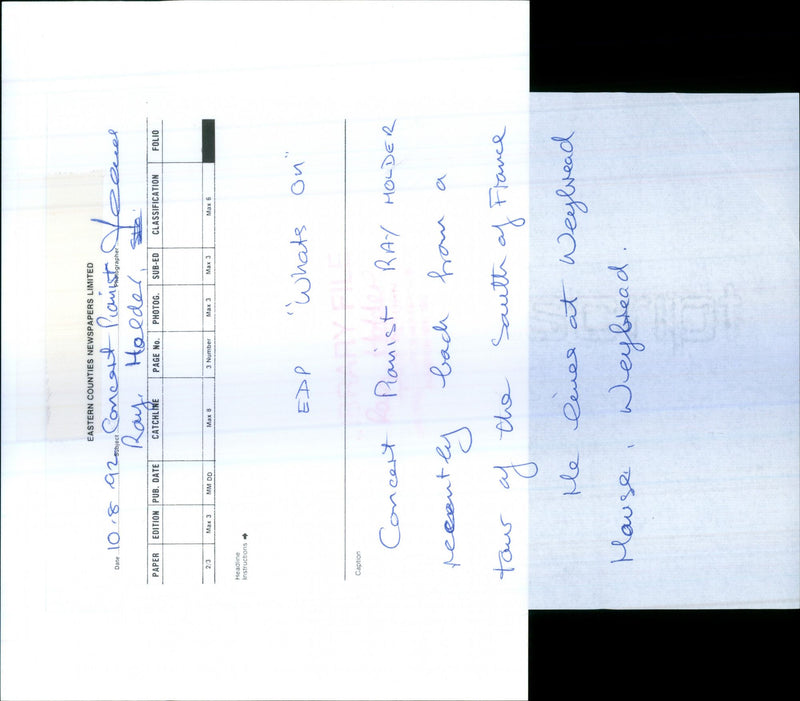 EASTERN COUNTIES NEWSPAPERS LIMITED
Date 10.8.92 Subject Concert Pianist Photographer
Ray Holder.
PAPER EDITION PUB. DATE CATCHLINE PAGE No. PHOTOG. SUB-ED CLASSIFICATION FOLIO
2/3 Max 3 MM DD Max 8 3 Number Max 3 Max 3 Max 6
Headline
Instructions
EDP "Whats On"
Caption
Concert Pianist RAY HOLDER
recently back from a
tour of the South of France
He lives at Weybread
House, Weybread.